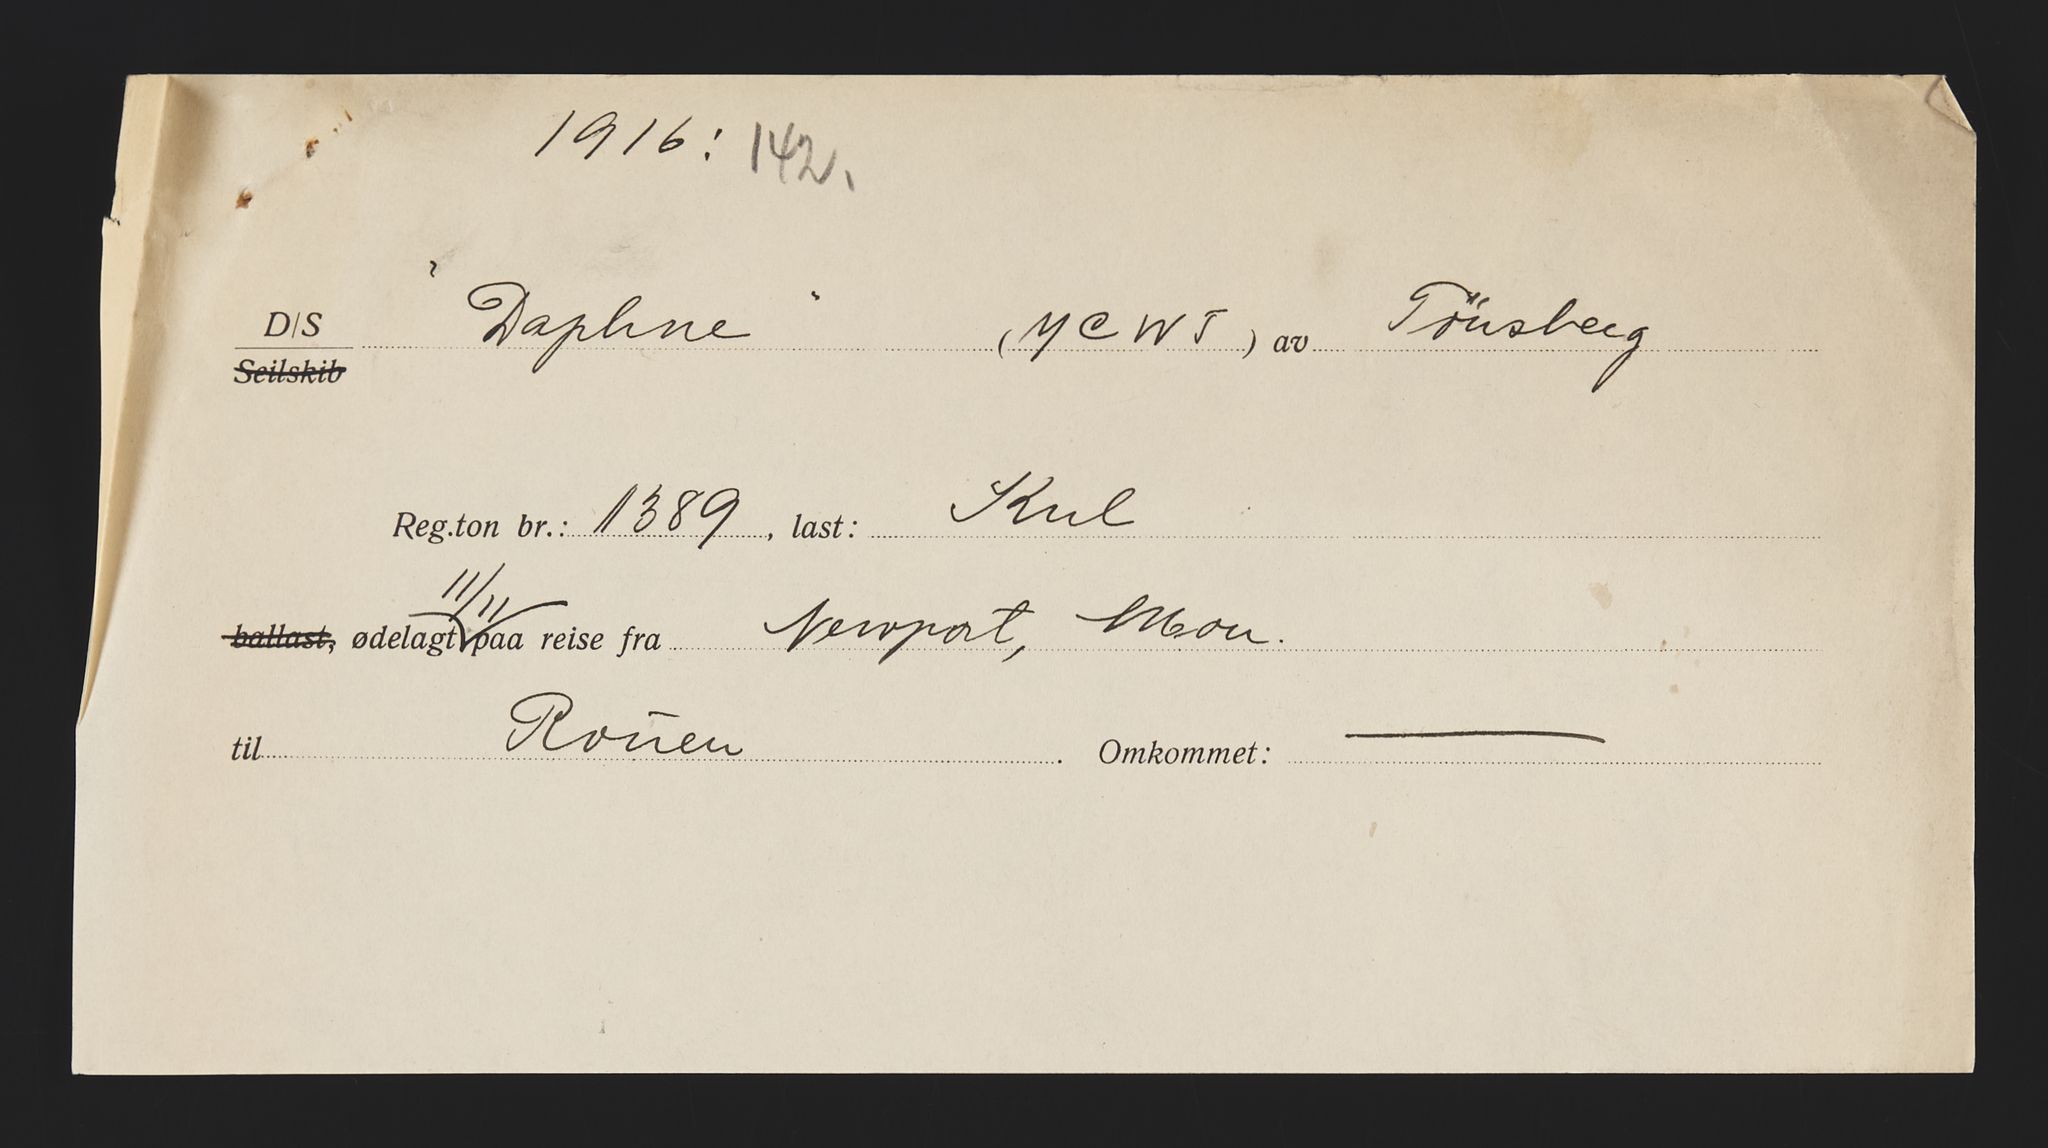 1916: 142.
D/S "Daphne" (MCWT) av Tönsberg
Seilskib
Reg.ton br.: 1389, last: Kul
11/11
ballast, ødelagt paa reise fra Newport, Mon.
til Rouen. Omkommet: —